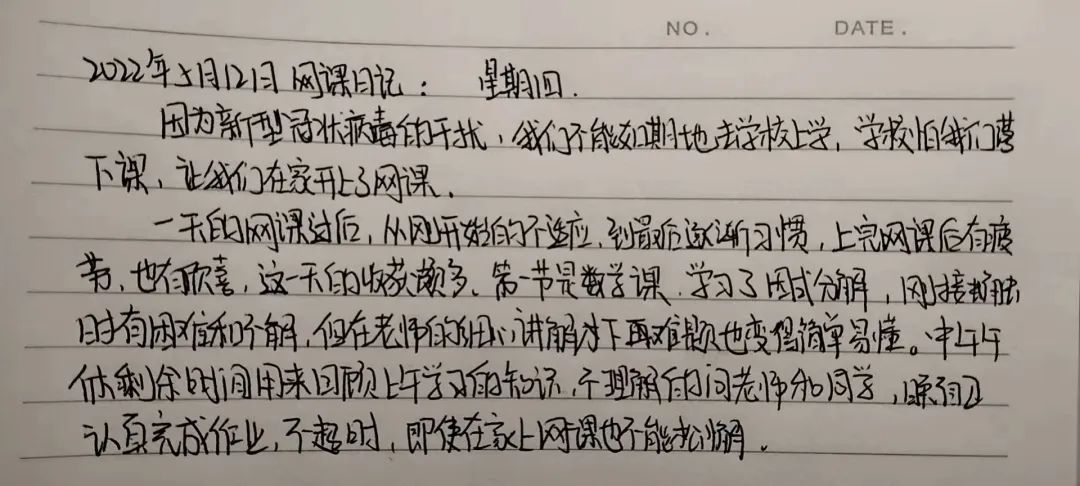 NO. DATE.
2022年5月12日 网课日记: 星期四.
因为新型冠状病毒的干扰,我们不能如期地去学校上学,学校怕我们落
下课,让我们在家开上了网课.
一天的网课过后,从刚开始的不适应,到最后逐渐习惯,上完网课后有疲
劳,也有欣喜,这一天的收获颇多、第一节是数学课.学习了因式分解,刚接触
时有困难和不解,但在老师的细心讲解过下再难题也变得简单易懂。中午午
休剩余时间用来回顾上午学习的知识,不理解的问老师和同学,
认真完成作业,不超时,即使在家上网课也不能松懈.